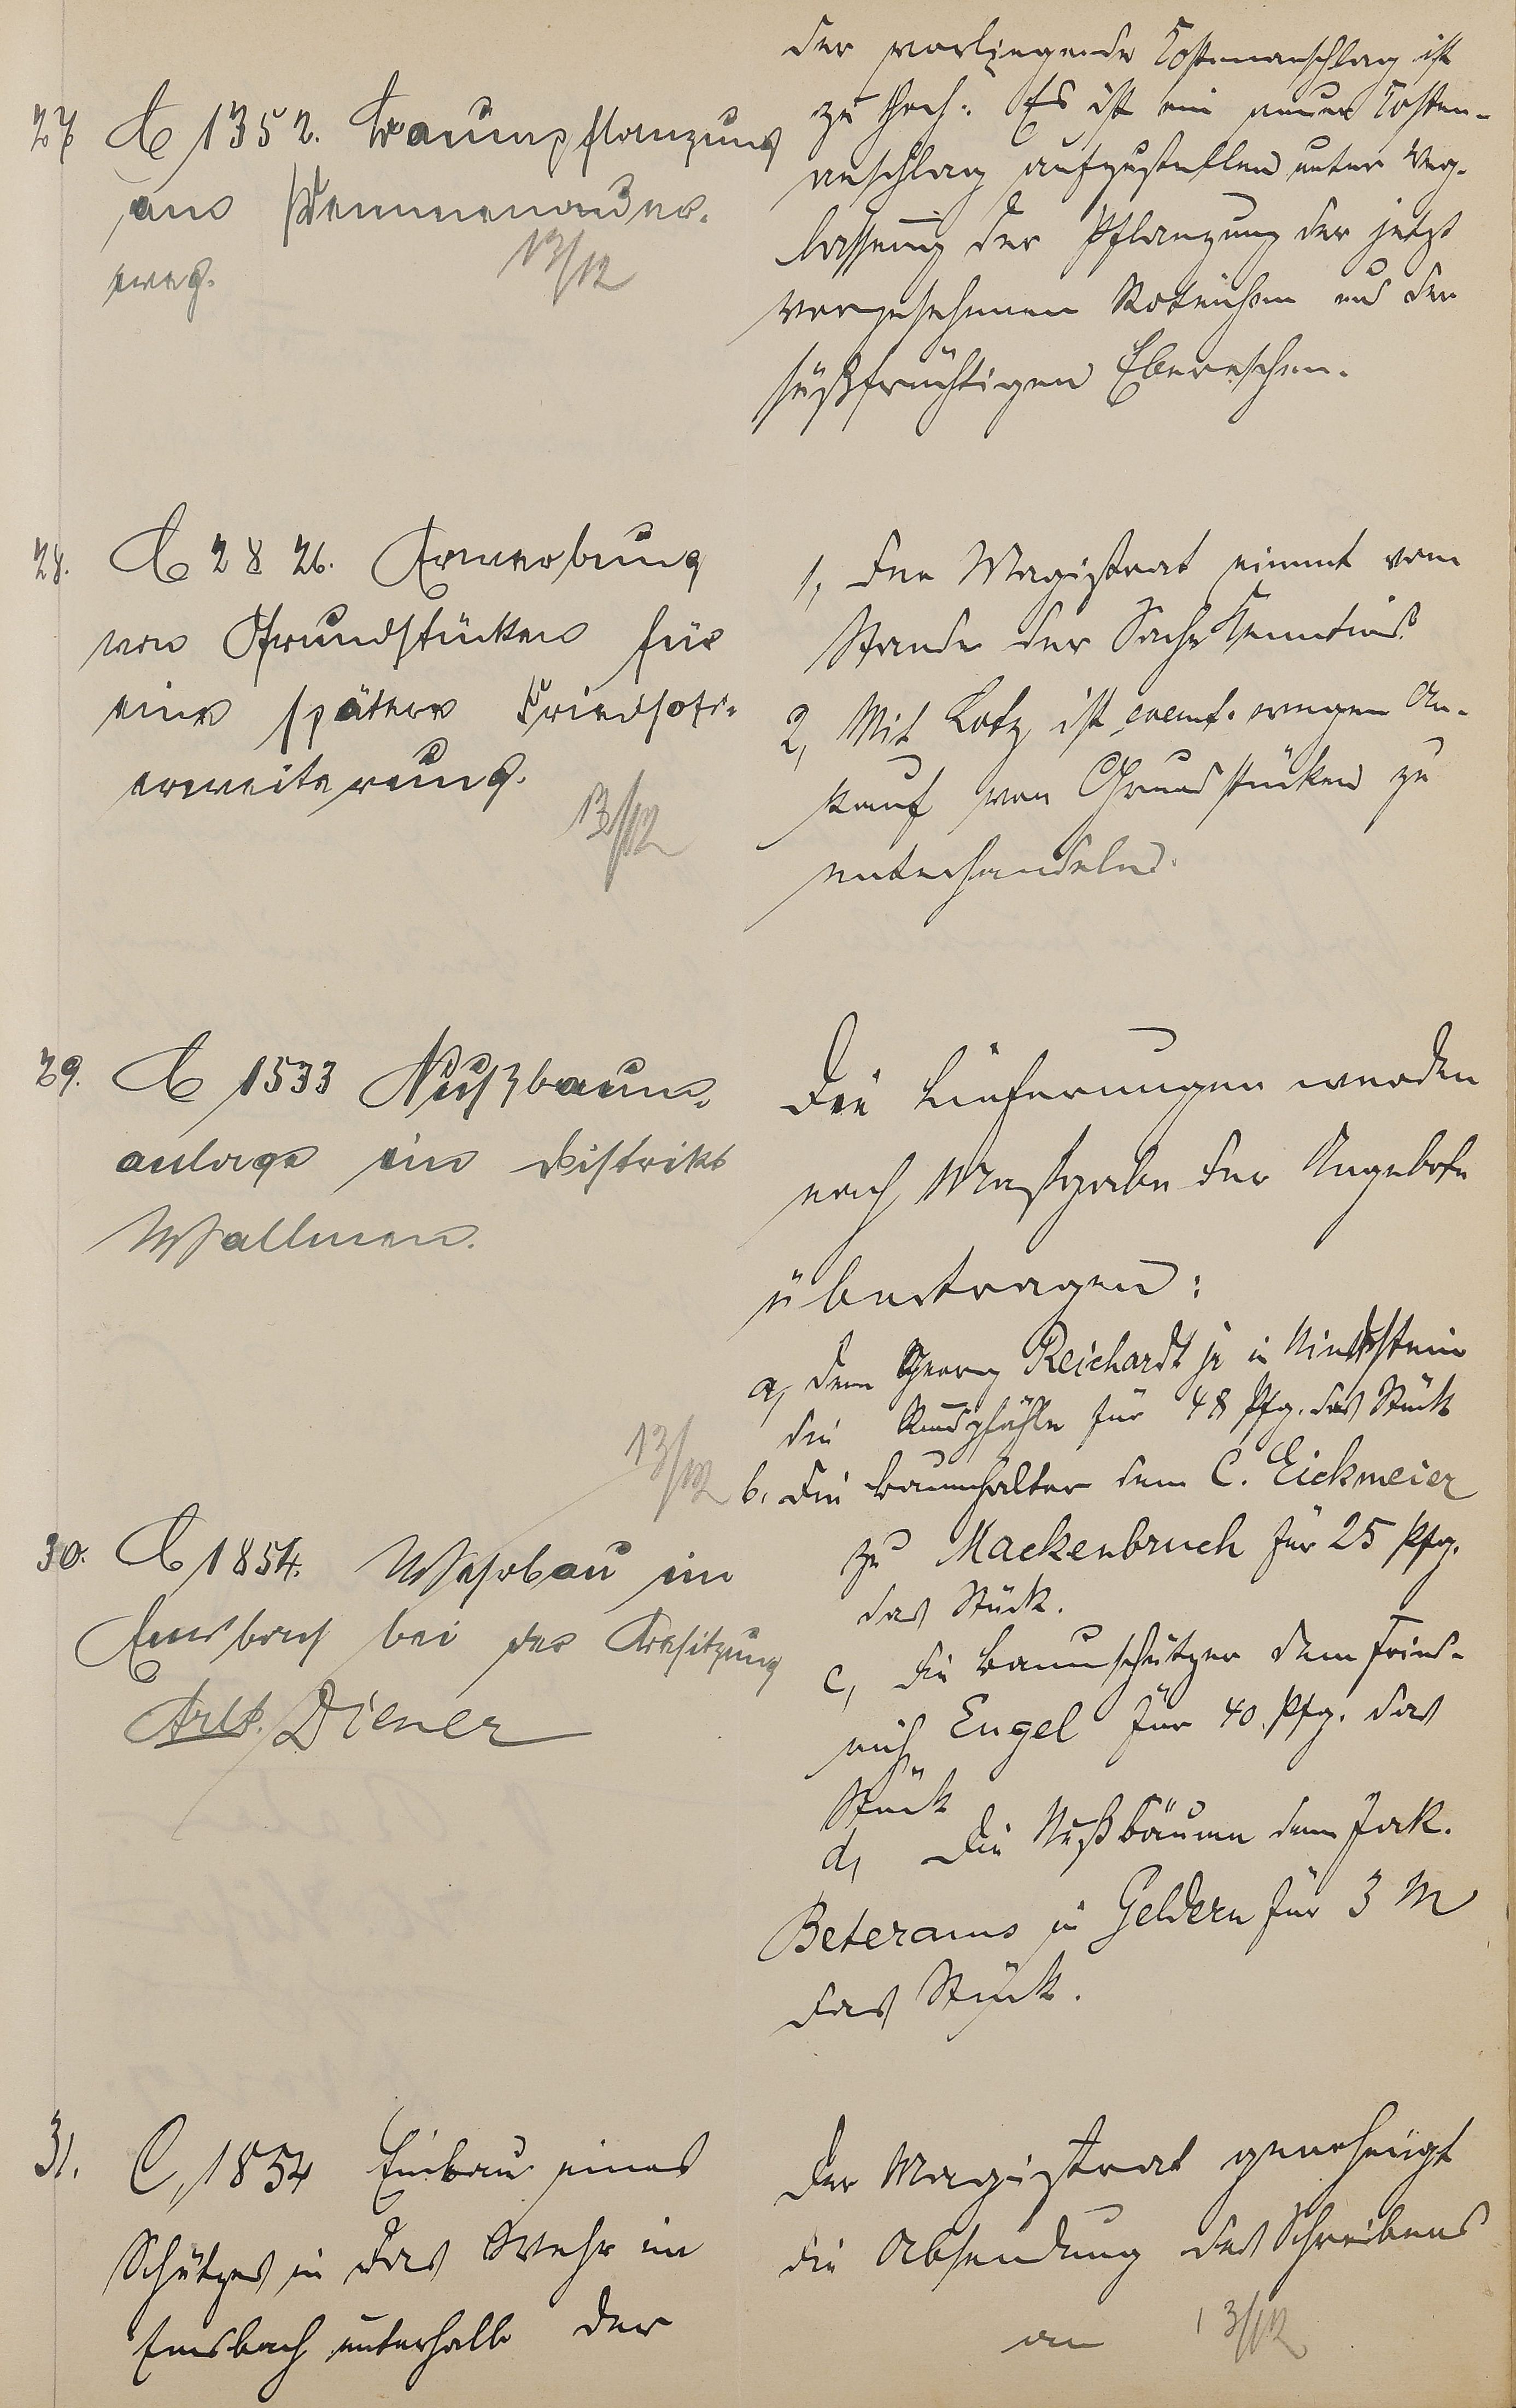 27 C 1352. Baumpflanzung
am Kemmenauer-
weg.
13/12
der vorliegende Kostenanschlag ist
zu hoch. Es ist ein neuer Kosten-
anschlag aufzustellen unter Weg-
lassung der Pflanzung der jetzt
vorgesehenen Roteichen und der
süßfrüchtigen Ebereschen.
28. C 2826. Erwerbung
von Grundstücken für
eine spätere Friedhofs-
erweiterung.
13/12
1, Der Magistrat nimmt vom
Stande der Sache Kenntnis.
2, Mit Lotz ist event. wegen An-
kauf von Grundstücken zu
unterhandeln.
29. C 1533 Nußbaum-
anlage im Distrikt
Wallmen.
13/12
Die Lieferungen werden
nach Maßgabe der Angebote
übertragen:
a, dem Georg Reichardt jr in
die Rundpfähle für 48 Pfg. das Stück
b, die Baumhalter dem C. Eickmeier
zu Mackenbruch für 25 Pfg.
das Stück.
c, die Baumschützer dem Fried-
rich Engel für 40 Pfg. das
Stück
d, die Nußbäume dem Jak.
Beterams in Geldern für 3 M
das Stück.
30. C 1854. Wehrbau im
Emsbach bei der Besitzung
Arlt. / Diener
31. C, 1854 Einbau eines
Schützes in das Wehr im
Emsbach unterhalb der
Der Magistrat genehmigt
die Absendung des Schreibens
an 13/12